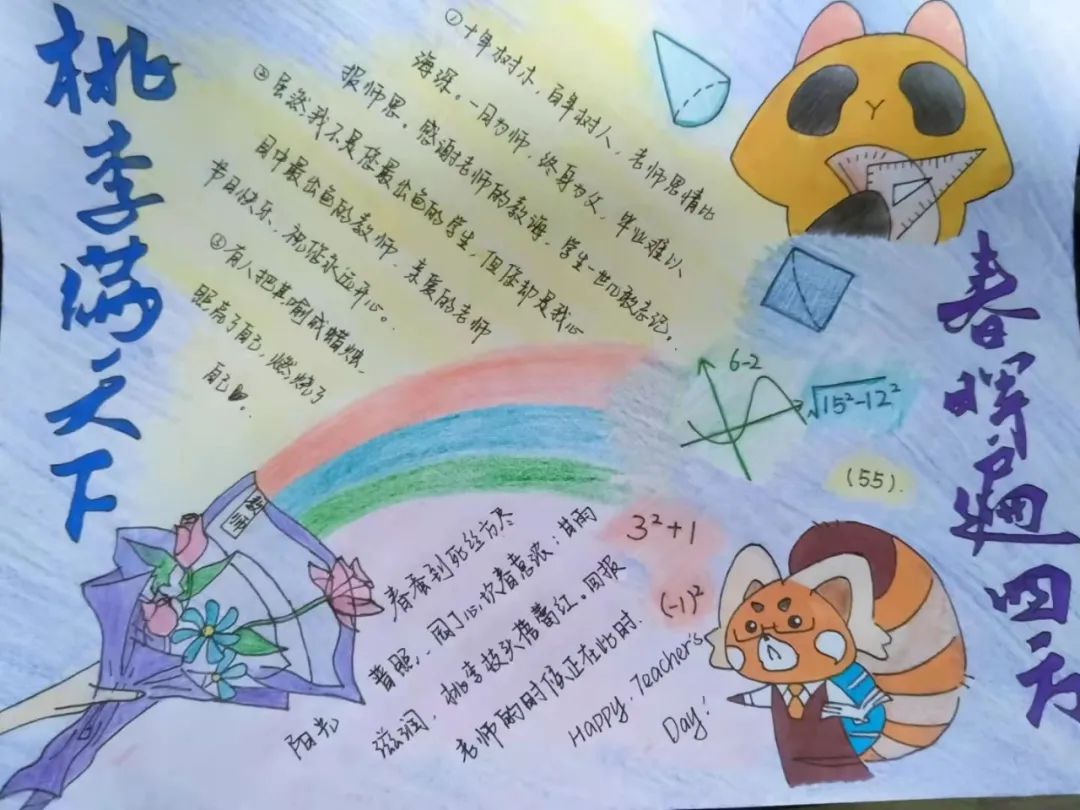 桃李满天下
春晖遍四方
①十年树木，百年树人，老师恩情比
海深。一日为师，终身为父，毕业难以
报师恩。感谢老师的教诲，学生一世敢忘记。
②虽然我不是您最出色的学生，但您却是我心
目中最出色的教师，亲爱的老师
节日快乐、祝您永远开心。
③有人把其喻成蜡烛，
照亮了自己，燃烧了
自己。
6-2
√15²-12²
(55).
3²+1
(-1)²
春蚕到死丝方尽
阳光普照，园丁心坎春意浓；甘雨
滋润，桃李枝头蓓蕾红。回报
老师的时候正在此时.
Happy. Teacher's
Day!